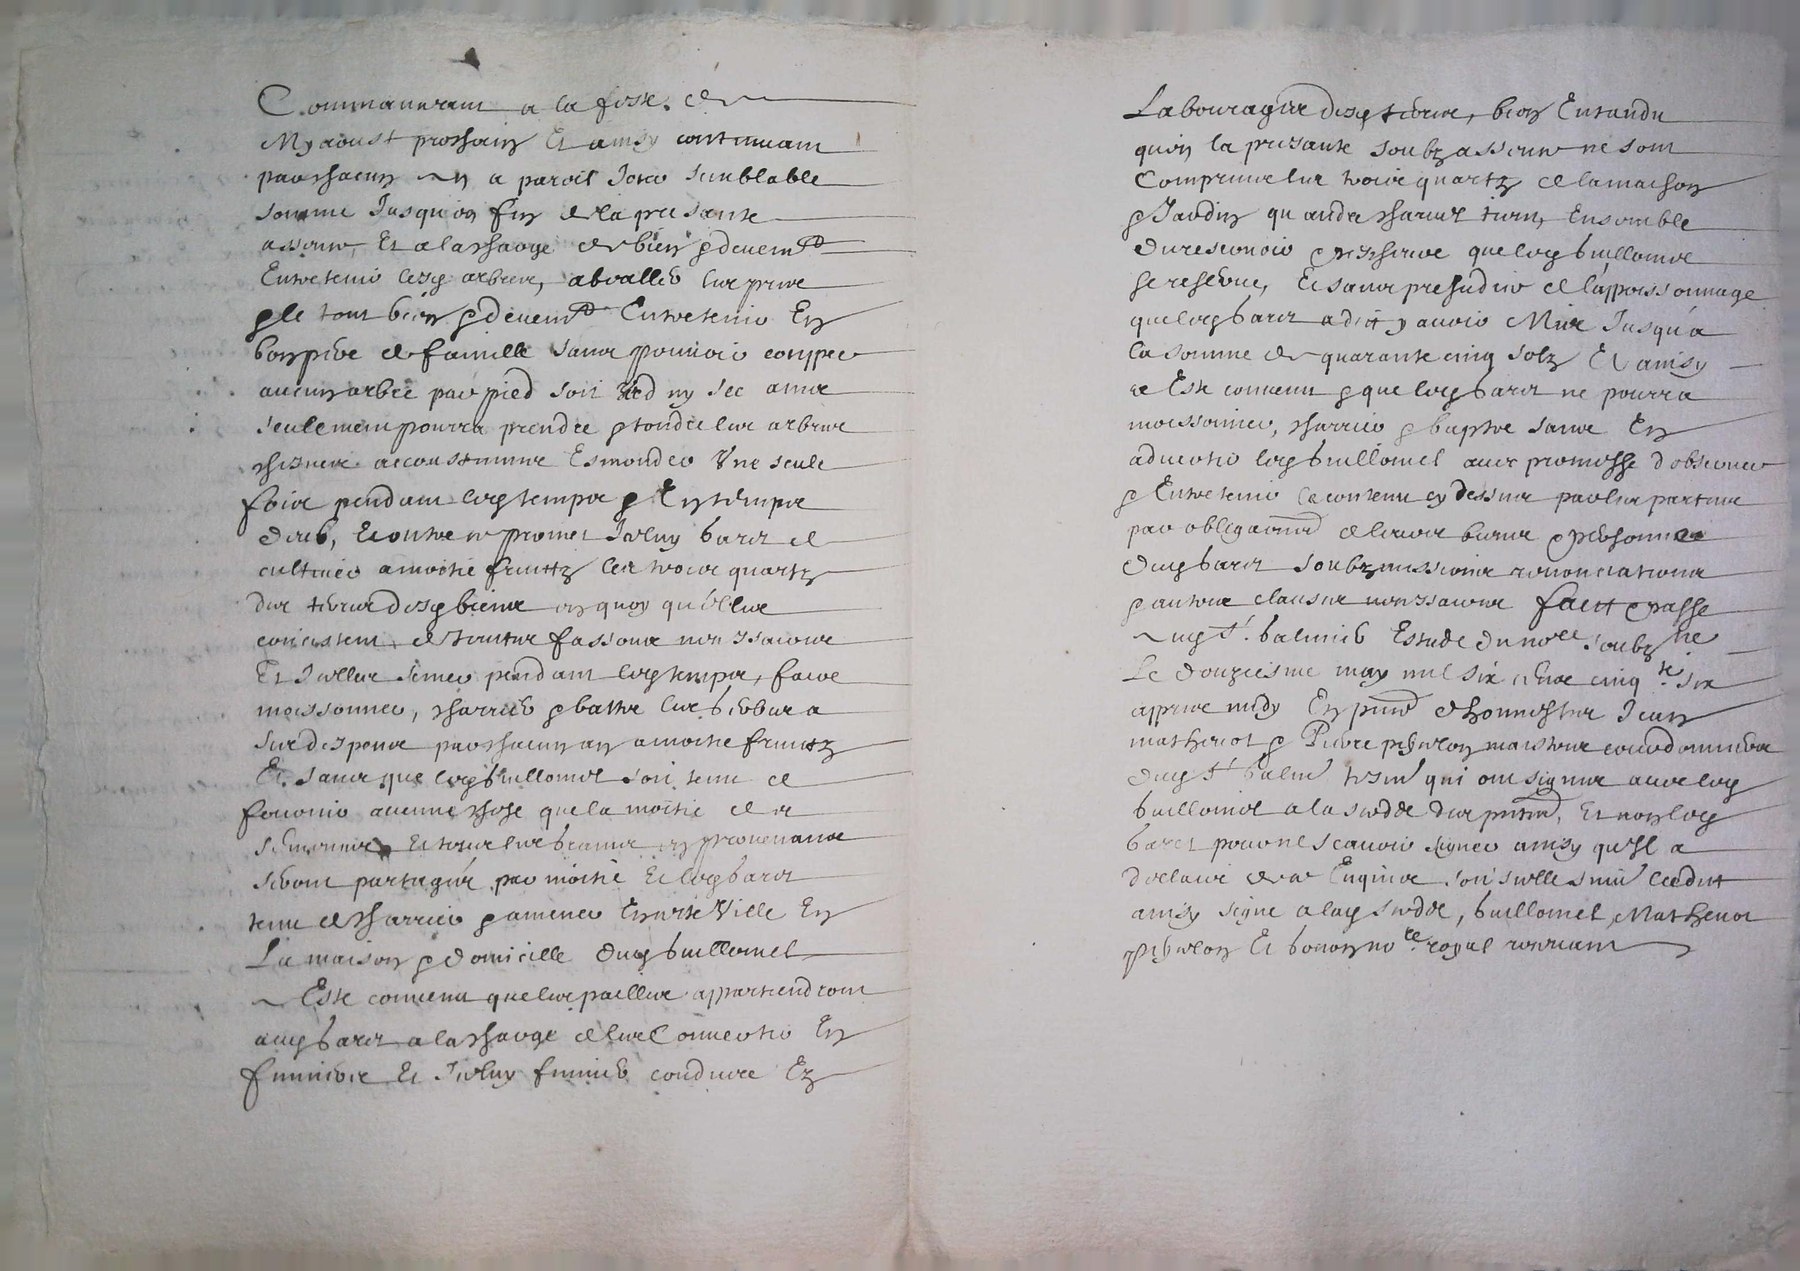 Commancant a la feste de
My aoust prochain Et ainsy continuant
par chacun an a pareil Jour semblable
somme Jusqu'en fin de la presante
assence, Et a la charge de bien & deuem^t
Entretenir lesd arbres,
& le tout bien & deuem^t Entretenir En
bon pere de famille sans pouuoir coupper
aucun arbre par pied soit verd ny sec ains
seulement pourra prendre & tondre les arbres
chesnes accoustumes Esmonder Une seule
fois pendant led temps & En temps
deub, Et outre ce promet Iceluy baret de
cultiuer a moitie fruittz les trois quartz
des terres desd biens en quoy qu'elles
consistent, de touttes fassons necessaires
Et Icelles semer pendant led temps, faire
moissonner, charrier & battre les bledz a
ses despens par chacun an a moitie fruittz
Et sans que led buillomet soit tenu de
fournir aucune chose que la moitie des
semences Et tous les grains en prouenans
seront partagés par moitie Et led baret
tenu de charrier & amener En ceste Ville En
La maison & domicille dud buillomet
Este conuenu que les pailles appartiendront
aud baret a la charge de les Conuertir En
fumier Et Iceluy fumier conduire Ez
Labourages desd terres, bien Entandu
qu'en la presante soubz assence ne sont
Comprins les trois quartz de la maison
& Jardin
que led buillomet
se reserue, Et sans prejudice de l'appoissonnage
que led baret a dict y auoir Mis Jusqu'a
la somme de quarante cinq solz Et ainsy
Este conuenu & que led baret ne pourra
moissonner, charrier & battre sans En
aduertir led buillomet auec promesse d'obseruer
& Entretenir le contenu cy dessus par les parties
par obligation de leurs biens & personne
dud baret soubzmissions renonciations
& autres clauses necessaires faict & passe
aud S^t. balmier Estude du no^re soubz^ne
Le douziesme may mil six cens cinq^te six
appres midy En pnce d'honnestes Jean
matherot & Pierre maistres cordonniers
dud S^t balm^r tesm^s qui ont signes auec led
buillomet a la cedde des pntes, Et non led
baret pour ne scauoir signer ainsy qu'il a
declaire de ce Enquis
ainsy signe a lad cedde, buillomet, Matherot
Et no^re royal receuant